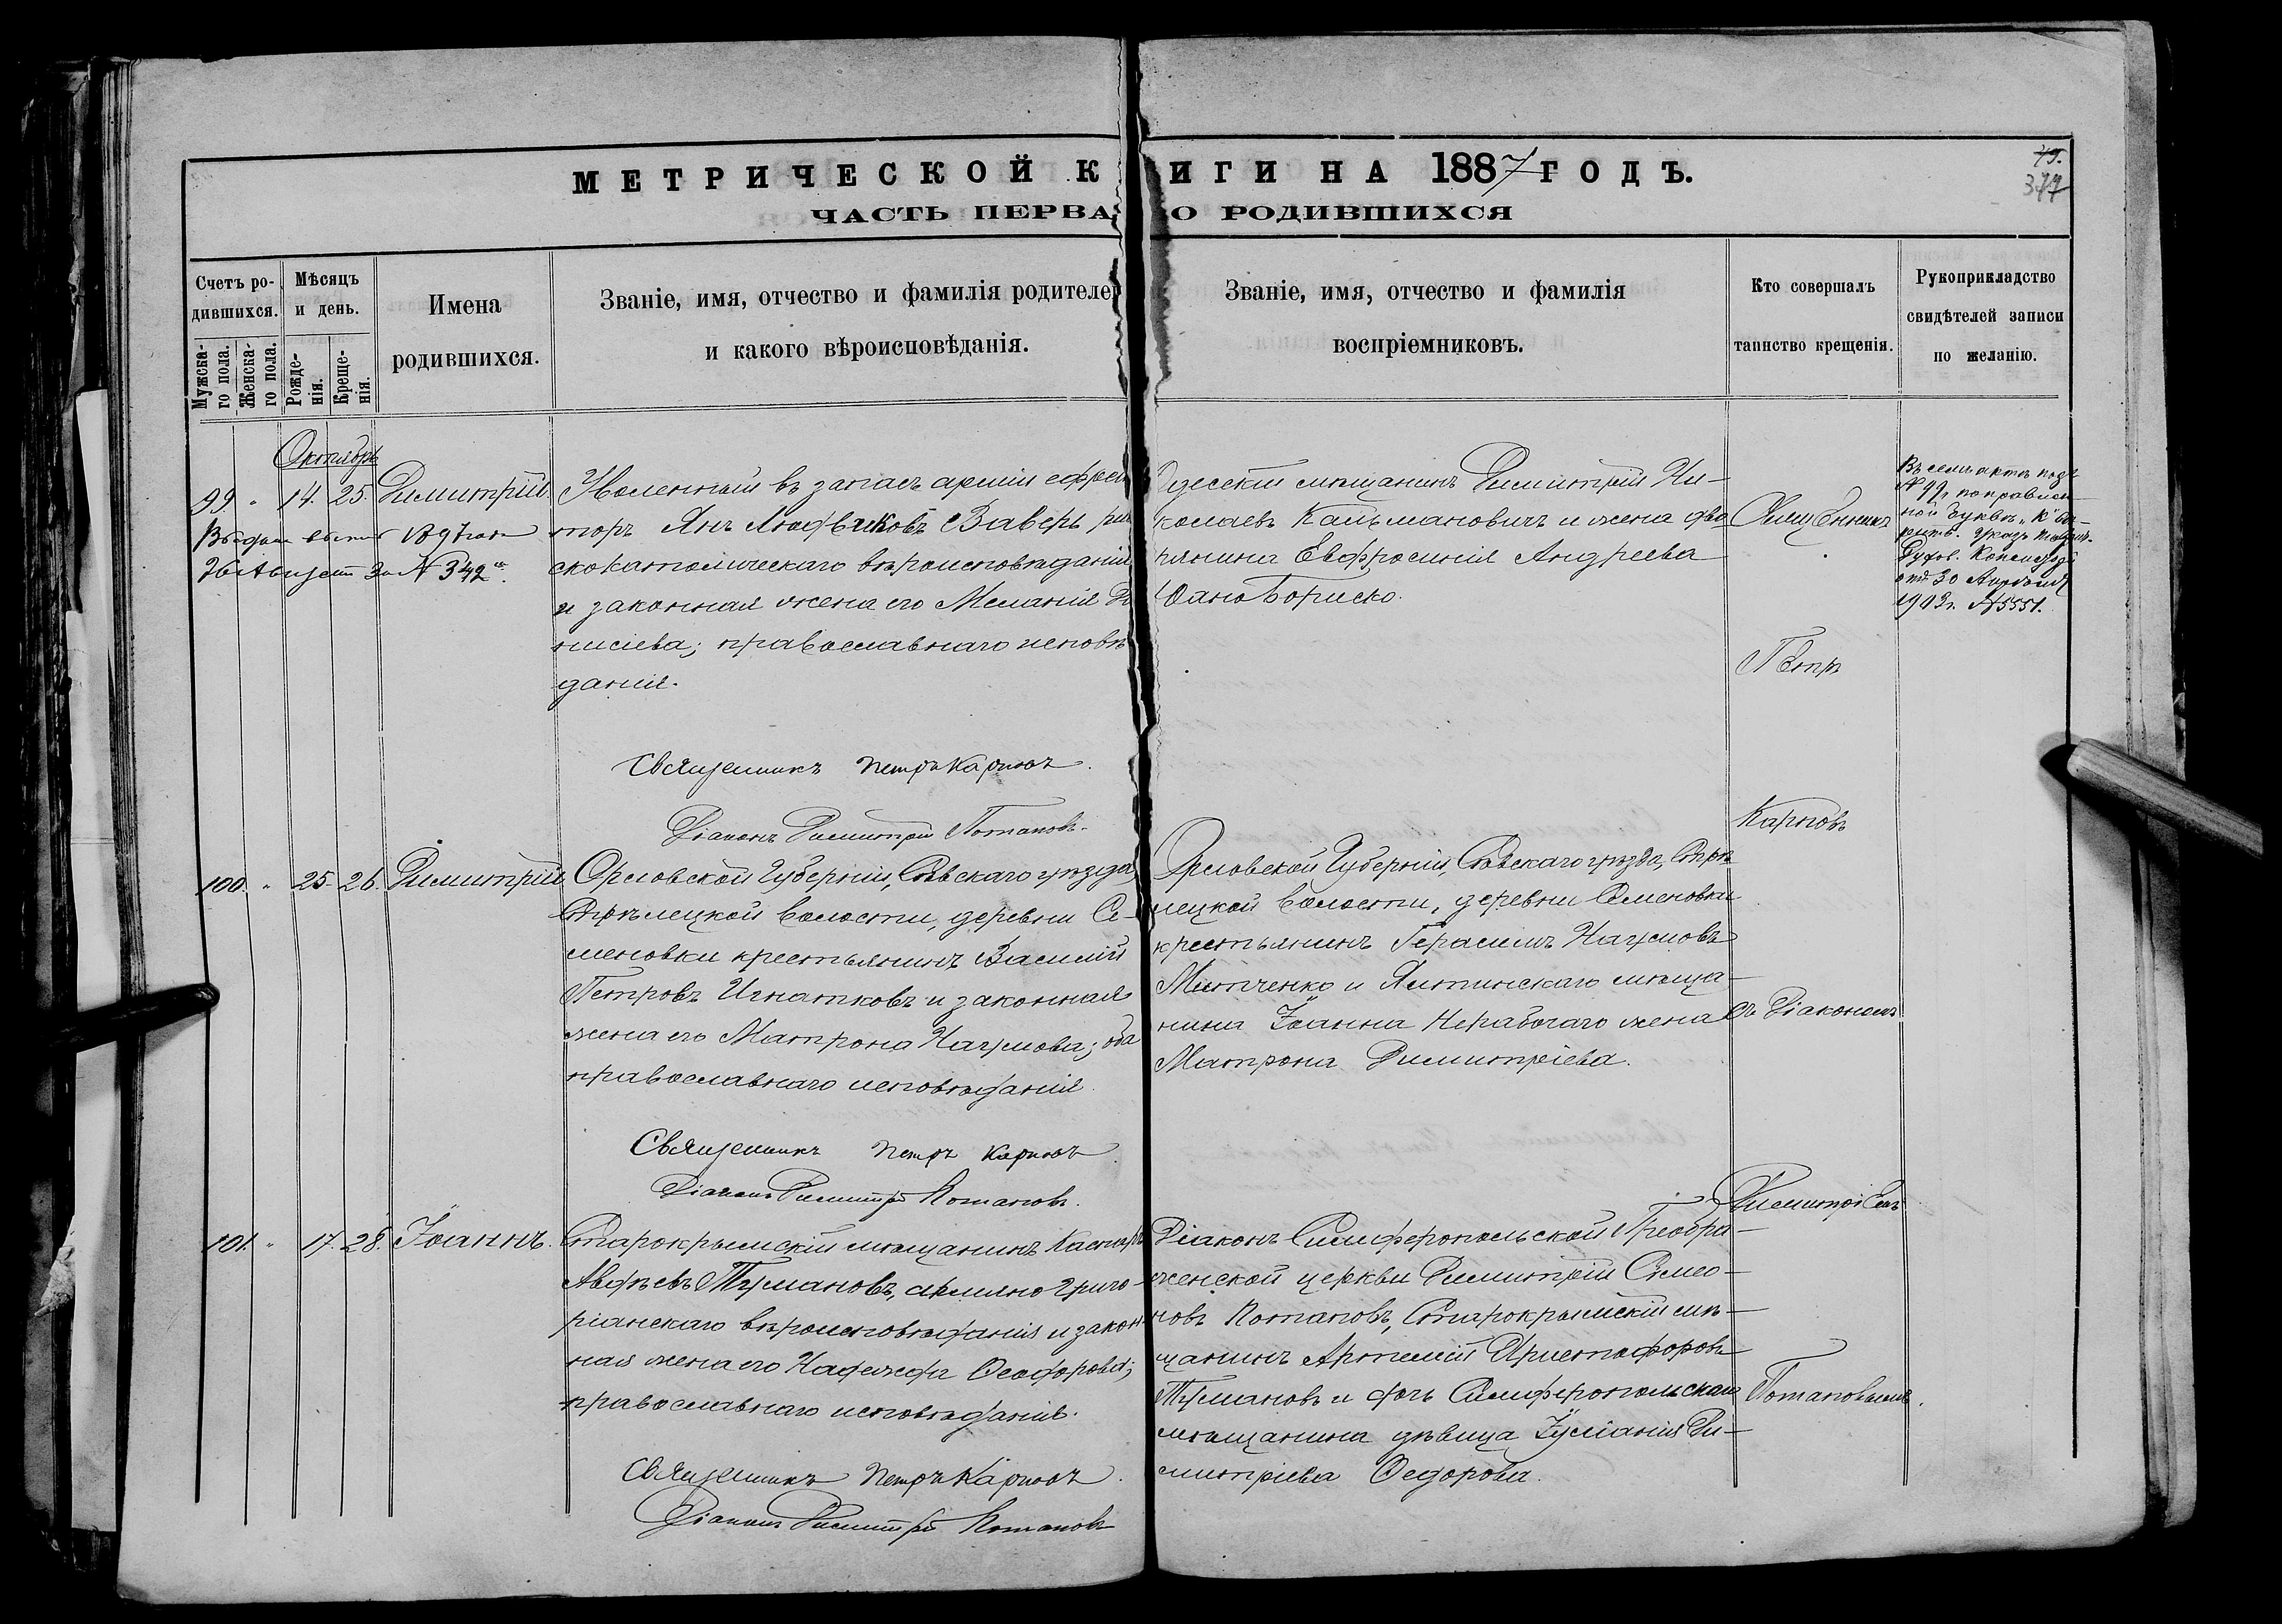 МЕТРИЧЕСКОЙ К ИГИ НА 1887 ГОДЪ.
79.
377
ЧАСТЬ ПЕРВА О РОДИВШИХСЯ
Счетъ ро-
дившихся.
Мужска-
го пола.
Женска-
го пола.
Мѣсяцъ
и день.
Рожде-
нія.
Креще-
нія.
Имена
родившихся.
Званіе, имя, отчество и фамилія родителе
и какого вѣроисповѣданія.
Званіе, имя, отчество и фамилія
воспріемниковъ.
Кто совершалъ
таинство крещенія.
Рукоприкладство
свидѣтелей записи
по желанію.
Октябрь
99. " 14. 25. Димитрій.
26 Августа За № 342
Уволенный въ запасъ арміи ефрей
торъ Янъ Людвиковъ Заверъ рим
скокатолическаго вѣроисповѣданія
и законная жена его Меланія Ді
нисіева; православнаго исповѣ
данія.
Священникъ Петръ Карповъ.
Діаконъ Димитрій Потаповъ.
Одесскій мѣщанинъ Димитрій Ни-
колаевъ Кальмановичъ и жена дво
рянина Евфросинія Андреева
Яно Бориско.
Священникъ
Петръ
Карповъ
съ Діакономъ
Димитріемъ
Потаповымъ.
Въ семъ актѣ подъ
№ 99, поправлен-
ной буквѣ "К" вѣ-
рить. Указъ Таврич.
Духов. Консисторіи
отъ 30 Апрѣля
1913 г. № 5551.
100. " 25. 26. Димитрій
Орловской Губерніи, Сѣвскаго уѣзда,
Стрѣлецкой волости, деревни Се-
меновки крестьянинъ Василій
Петровъ Игнатковъ и законная
жена его Матрона Наумова; оба
православнаго исповѣданія.
Священникъ Петръ Карповъ
Діаконъ Димитрій Потаповъ.
Орловской Губерніи, Сѣвскаго уѣзда, Стрѣ
лецкой волости, деревни Семеновки
крестьянинъ Герасимъ Наумовъ
Митченко и Ялтинскаго мѣща-
нина Іоанна Нерабочаго жена
Матрона Димитріева.
101. " 17. 28. Іоаннъ.
Старокрымскій мѣщанинъ Каспаръ
Авдѣевъ Тумановъ, армяно григо-
ріанскаго вѣроисповѣданія и закон
ная жена его Надежда Ѳеодорова;
православнаго исповѣданія.
Священникъ Петръ Карповъ.
Діаконъ Димитрій Потаповъ
Діаконъ Симферопольской Преобра-
женской церкви Димитрій Симео-
новъ Потаповъ, Старокрымскій мѣ-
щанинъ Артемій Христофоровъ
Тумановъ и дочь Симферопольскаго
мѣщанина дѣвица Іуліанія Ди-
митріева Ѳедорова.